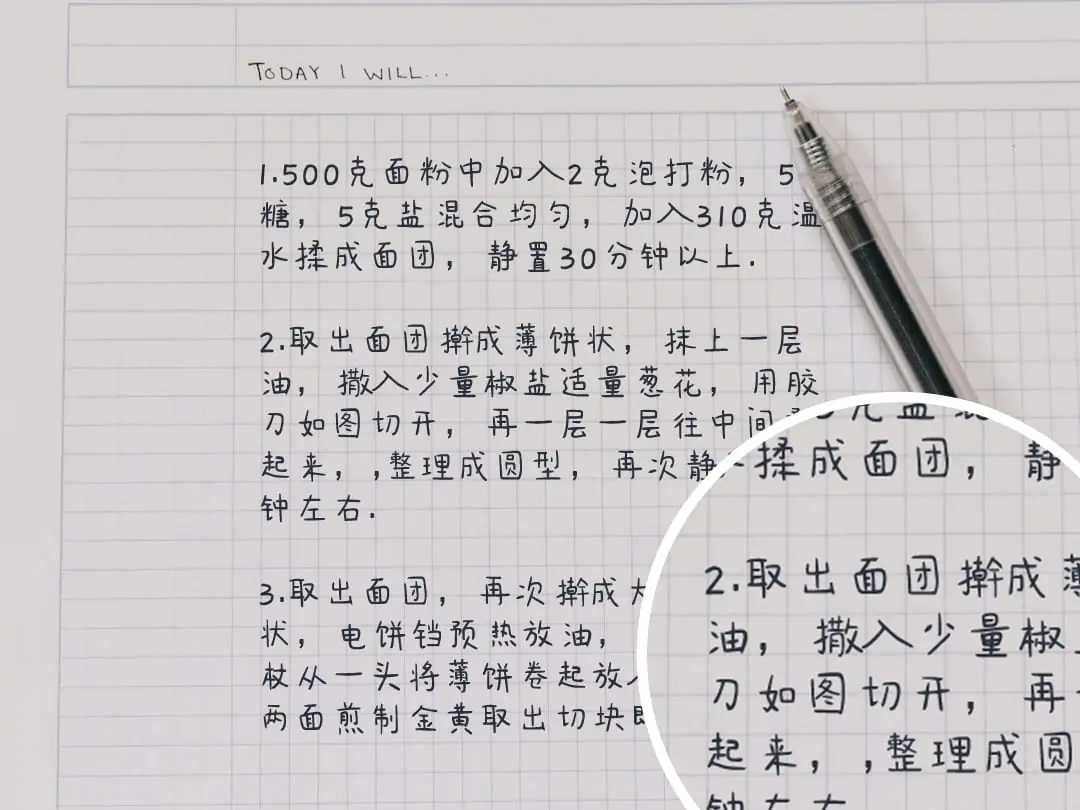 TODAY I WILL...
1.500克面粉中加入2克泡打粉，5
糖，5克盐混合均匀，加入310克温
水揉成面团，静置30分钟以上.
2.取出面团擀成薄饼状，抹上一层
油，撒入少量椒盐适量葱花，用胶
刀如图切开，再一层一层往中间
起来，,整理成圆型，再次静
钟左右.
3.取出面团，再次擀成
状，电饼铛预热放油，
杖从一头将薄饼卷起放
两面煎制金黄取出切块
揉成面团，静
2.取出面团擀成薄
油，撒入少量椒
刀如图切开，再
起来，,整理成圆
钟左右